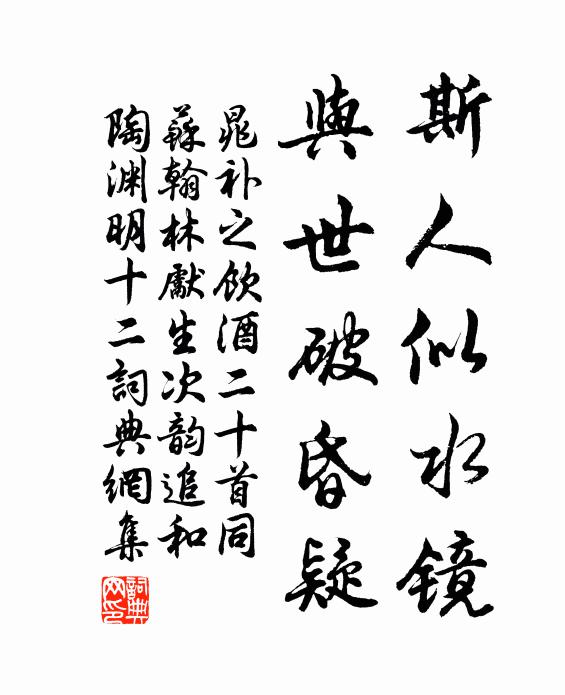 斯人似水镜
與世破昏疑
晁补之飲酒二十首同
蘇翰林獻生次韵追和
陶渊明十二詞典網集
詞典
网印